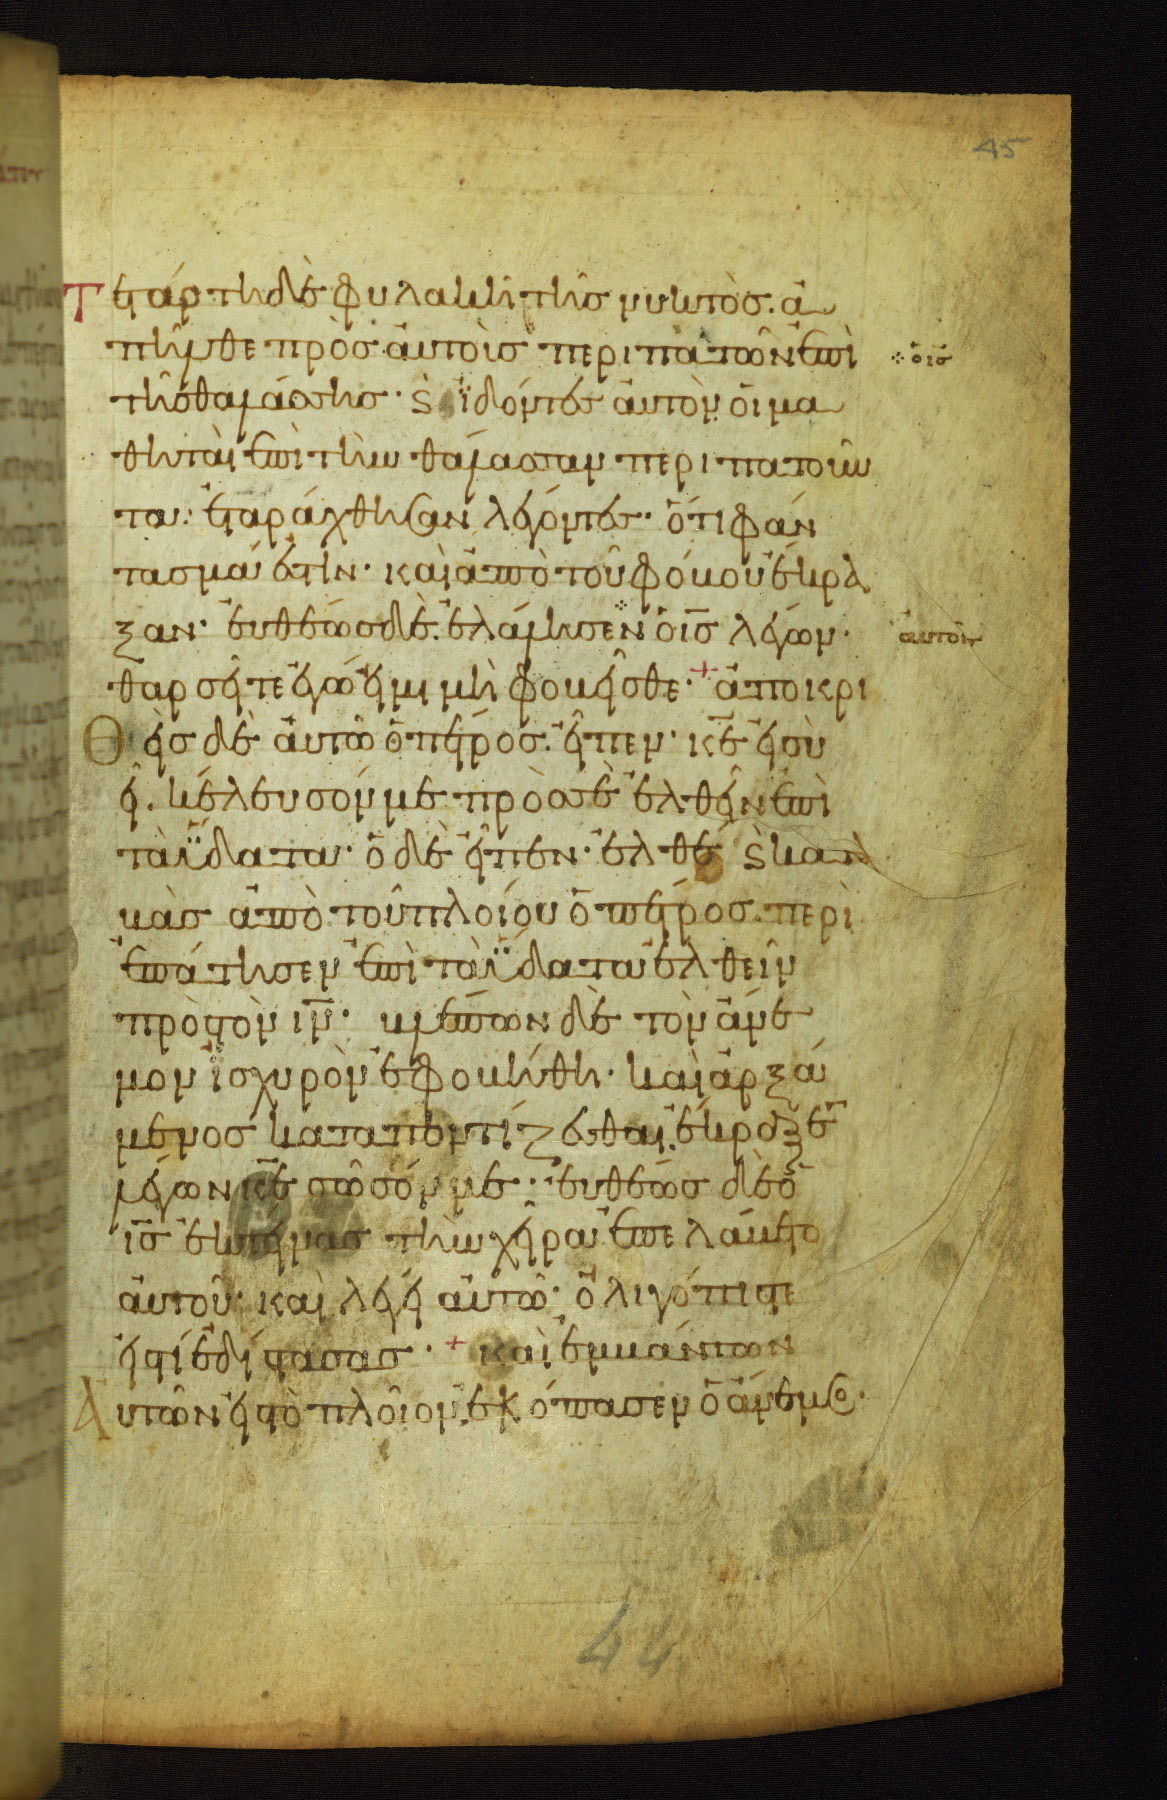 45
Τετάρτη δὲ φυλακῆ τῆς νυκτὸς. ἀ
πῆλθε πρὸς ἀυτοὺς περιπατῶν ἐπὶ
ὁ ις
τῆς θαλάσσης· ϛ ϊδόντες ἀυτὸν ὁι μα
θηταὶ ἐπὶ τὴν θάλασσαν περιπατοῦν
τα· ἐταράχθησαν λέγοντες· ὅτι φάν
τασμά ἐστιν· καὶ ἀπὸ τοῦ φόβου ἔκρα
ξαν· ἐυθέως δὲ ἐλάλησεν ὁ ις λέγων·
ἀυτοῖς
θαρσεῖτε ἐγώ ἐιμι μὴ φοβεῖσθε· + ἀποκρι
Θεὶς δὲ ἀυτῶ ὁ πέτρος. εἶπεν· κε ἐι σὺ
εἶ. κέλευσόν με πρὸς σὲ ἐλθεῖν ἐπὶ
τὰ ϋδατα· ὁ δὲ εἶπεν· ἐλθέ ϛ κατα
βὰς ἀπὸ τοῦ πλοίου ὁ πέτρος. περι
επάτησεν ἐπὶ τὰ ϋδατα ἐλθεῖν
πρὸς τὸν ιν· βλέπων δὲ τὸν ἄνε
μον ϊσχυρὸν ἐφοβήθη· καὶ ἀρξά
μενος καταποντίζεσθαι ἔκραξε
λέγων κε σῶσόν με· ἐυθέως δὲ ὁ
ις ἐκτείνας τὴν χεῖρα ἐπελάβετο
ἀυτοῦ· καὶ λέγει ἀυτῶ· ὀλιγόπιστε
εἰς τί ἐδίστασας· + καὶ ἐμβάντων
Αυτῶν εἰς τὸ πλοῖον. ἐκόπασεν ὁ ἄνεμος·
44